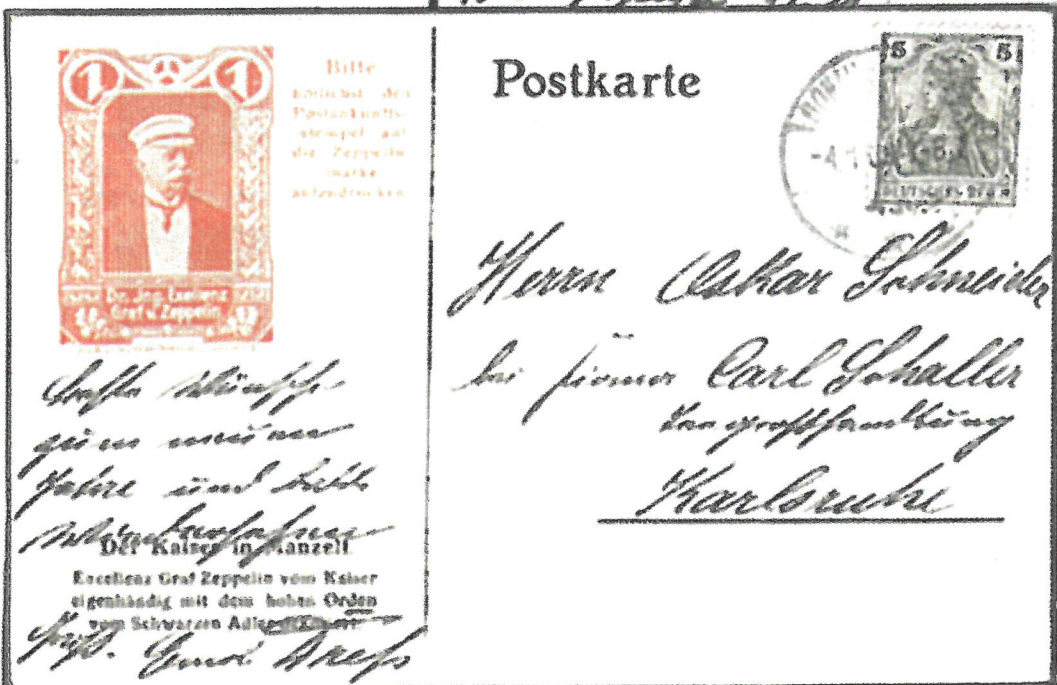 1 1
Dr. Ing. Exellenz
Graf v. Zeppelin
Bitte
höflichst den
Postankunfts-
stempel auf
die Zeppelin
marke
aufzudrucken
Postkarte
5 5
DEUTSCHES REICH
Herrn Oskar Schneider
bei Firma Carl Schaller
Teegroßhandlung
Karlsruhe
Beste Wünsche
zum neuen
Jahre und
Der Kaiser in Manzell.
Excellenz Graf Zeppelin vom Kaiser
eigenhändig mit dem hohen Orden
vom Schwarzen Adler